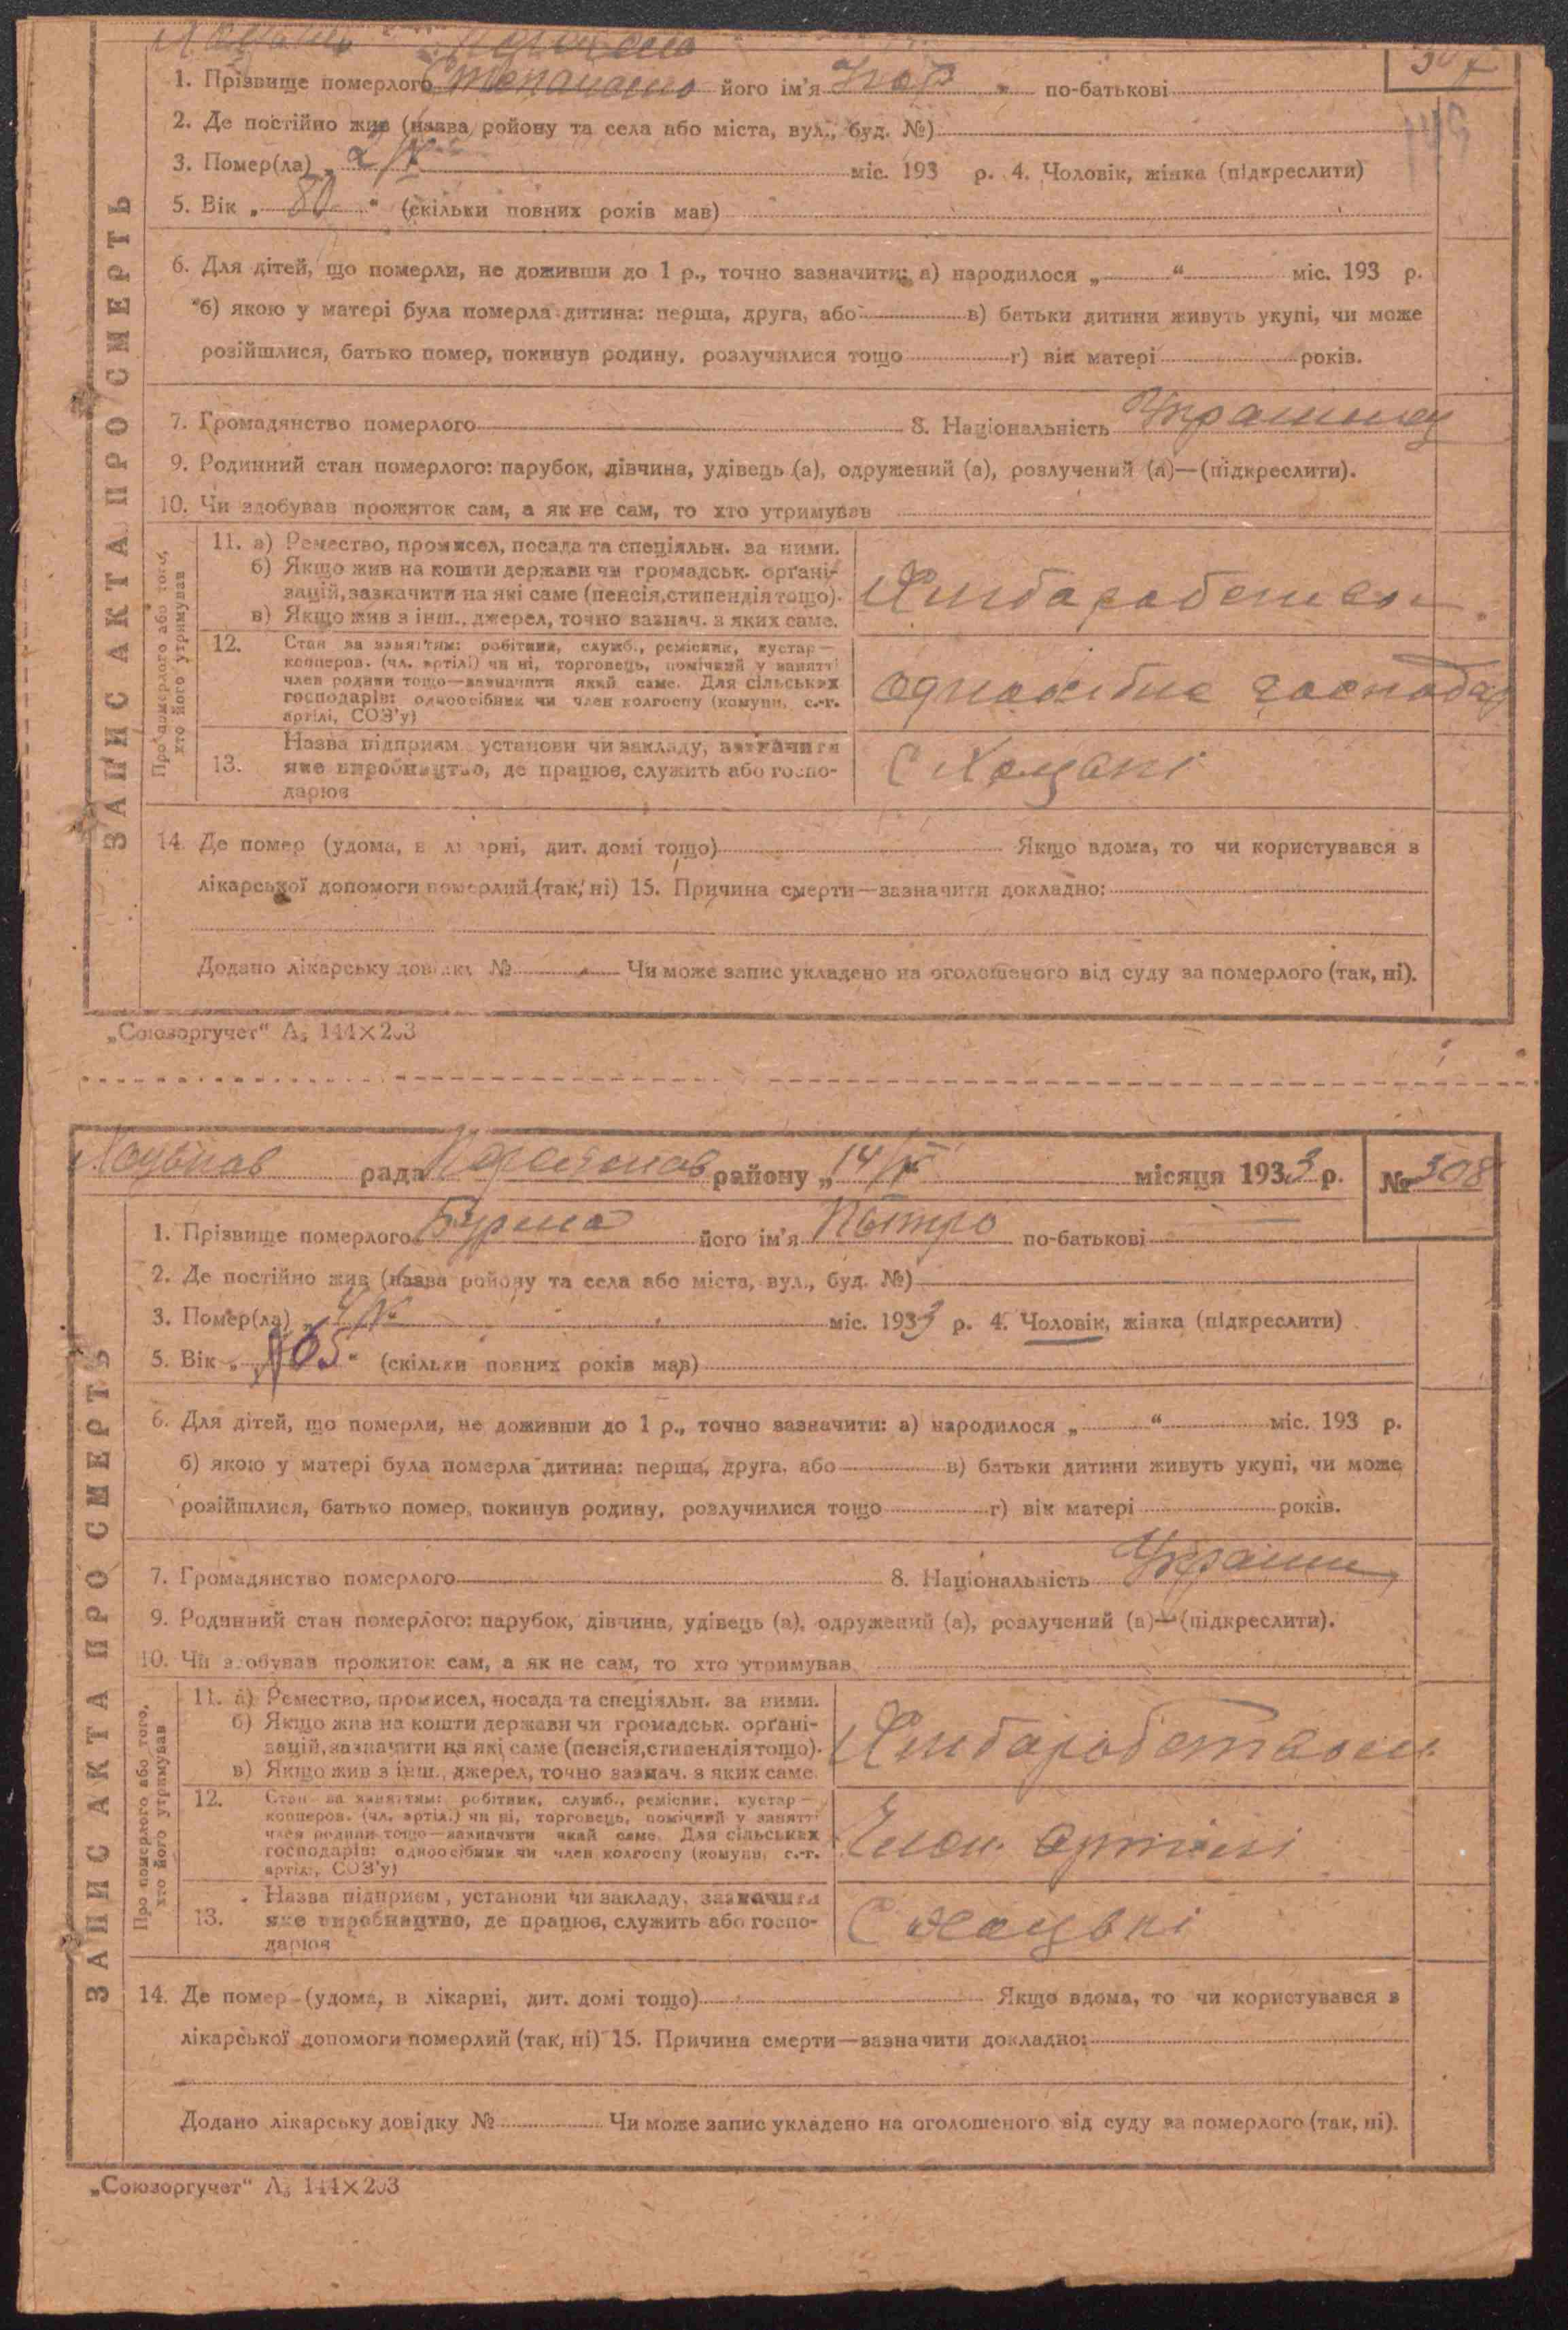 307
1. Прізвище померлого його ім'я по-батькові
2. Де постійно жив (назва ройону та села або міста, вул., буд. №)
3. Помер(ла) „ міс. 193 р. 4. Чоловік, жінка (підкреслити)
5. Вік „ 80 “ (скільки повних років мав)
6. Для дітей, що померли, не доживши до 1 р., точно зазначити: а) народилося „ “ міс. 193 р.
б) якою у матері була померла дитина: перша, друга, або в) батьки дитини живуть укупі, чи може
розійшлися, батько помер, покинув родину, розлучилися тощо г) вік матері років.
7. Громадянство померлого 8. Національність
9. Родинний стан померлого: парубок, дівчина, удівець (а), одружений (а), розлучений (а)—(підкреслити).
10. Чи здобував прожиток сам, а як не сам, то хто утримував
ЗАПИС АКТА ПРО СМЕРТЬ
Про померлого або того,
хто його утримував
11. а) Ремество, промисел, посада та спеціяльн. за ними.
б) Якщо жив на кошти держави чи громадськ. орґані-
зацій, зазначити на які саме (пенсія, стипендія тощо).
в) Якщо жив з інш., джерел, точно зазнач. з яких саме.
12. Стан за заняттям: робітник, служб., ремісник, кустар—
кооперов. (чл. артілі) чи ні, торговець, помічний у занятті
член родини тощо—зазначити який саме. Для сільських
господарів: одноосібник чи член колгоспу (комуни, с.-г.
артілі, СОЗ'у)
13. Назва підприєм. установи чи закладу, зазначити
яке виробництво, де працює, служить або госпо-
дарює
14. Де помер (удома, в лікарні, дит. домі тощо) Якщо вдома, то чи користувався з
лікарської допомоги померлий (так, ні) 15. Причина смерти—зазначити докладно:
Додано лікарську довідку № Чи може запис укладено на оголошеного від суду за померлого (так, ні).
„Союзоргучет“ А₅ 144×203
рада району „ 14/ місяця 1933 р. № 308
1. Прізвище померлого Бурма його ім'я Петро по-батькові
2. Де постійно жив (назва ройону та села або міста, вул., буд. №)
3. Помер(ла) „ міс. 1933 р. 4. Чоловік, жінка (підкреслити)
5. Вік „ 65 “ (скільки повних років мав)
6. Для дітей, що померли, не доживши до 1 р., точно зазначити: а) народилося „ “ міс. 193 р.
б) якою у матері була померла дитина: перша, друга, або в) батьки дитини живуть укупі, чи може
розійшлися, батько помер, покинув родину, розлучилися тощо г) вік матері років.
7. Громадянство померлого 8. Національність
9. Родинний стан померлого: парубок, дівчина, удівець (а), одружений (а), розлучений (а)—(підкреслити).
10. Чи здобував прожиток сам, а як не сам, то хто утримував
ЗАПИС АКТА ПРО СМЕРТЬ
Про померлого або того,
хто його утримував
11. а) Ремество, промисел, посада та спеціяльн. за ними.
б) Якщо жив на кошти держави чи громадськ. орґані-
зацій, зазначити на які саме (пенсія, стипендія тощо).
в) Якщо жив з інш., джерел, точно зазнач. з яких саме.
12. Стан за заняттям: робітник, служб., ремісник, кустар—
кооперов. (чл. артілі) чи ні, торговець, помічний у занятті
член родини тощо—зазначити який саме. Для сільських
господарів: одноосібник чи член колгоспу (комуни, с.-г.
артілі, СОЗ'у)
Член артілі
13. Назва підприєм., установи чи закладу, зазначити
яке виробництво, де працює, служить або госпо-
дарює
14. Де помер (удома, в лікарні, дит. домі тощо) Якщо вдома, то чи користувався з
лікарської допомоги померлий (так, ні) 15. Причина смерти—зазначити докладно:
Додано лікарську довідку № Чи може запис укладено на оголошеного від суду за померлого (так, ні).
„Союзоргучет“ А₅ 144×203